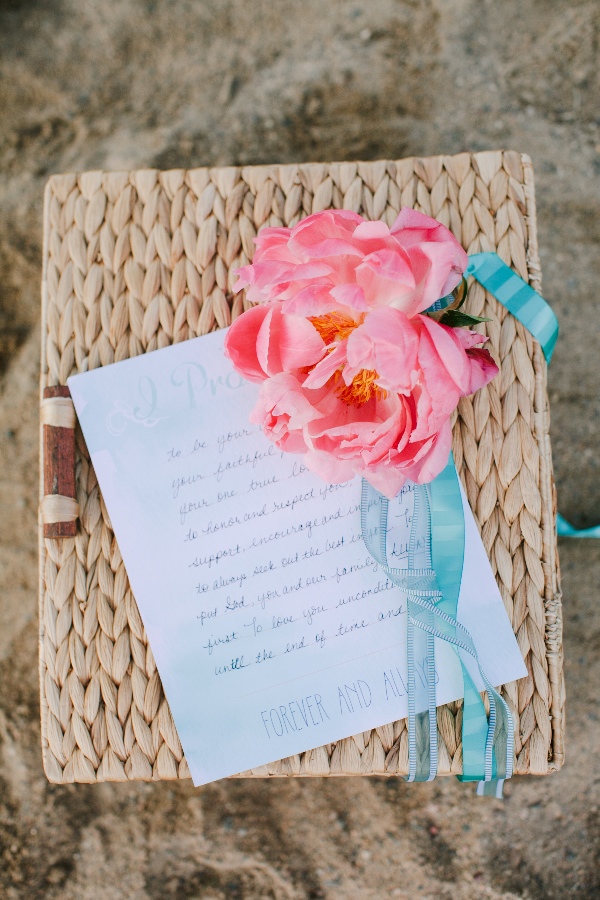 I Pro
to be your
your faithful
your one true lo
to honor and respect you
support, encourage and in
to always seek out the best in
put God, you and our family
first. To love you uncondit
until the end of time and
FOREVER AND ALWAYS